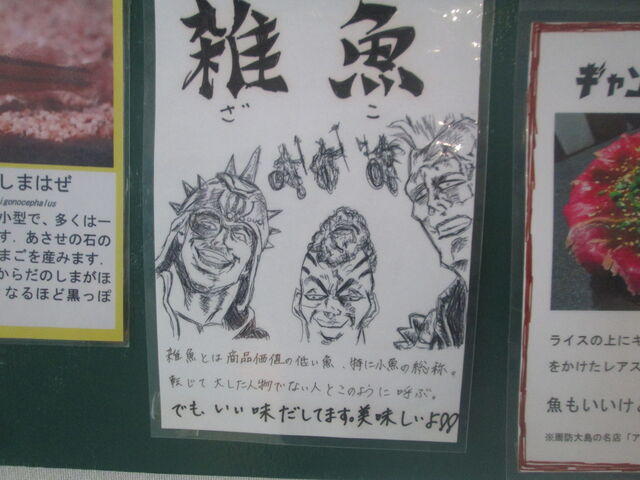 しまはぜ
igonocephalus
小型で、多くは一
す．あさせの石の
まごを産みます．
からだのしまがほ
なるほど黒っぽ
雑魚
ざこ
雑魚とは商品価値の低い魚、特に小魚の総称。
転じて大した人物でない人とこのように呼ぶ。
でも、いい味だしてます。美味しいよ
ギャン
ライスの上にキ
をかけたレアス
魚もいいけ
※周防大島の名店「ア